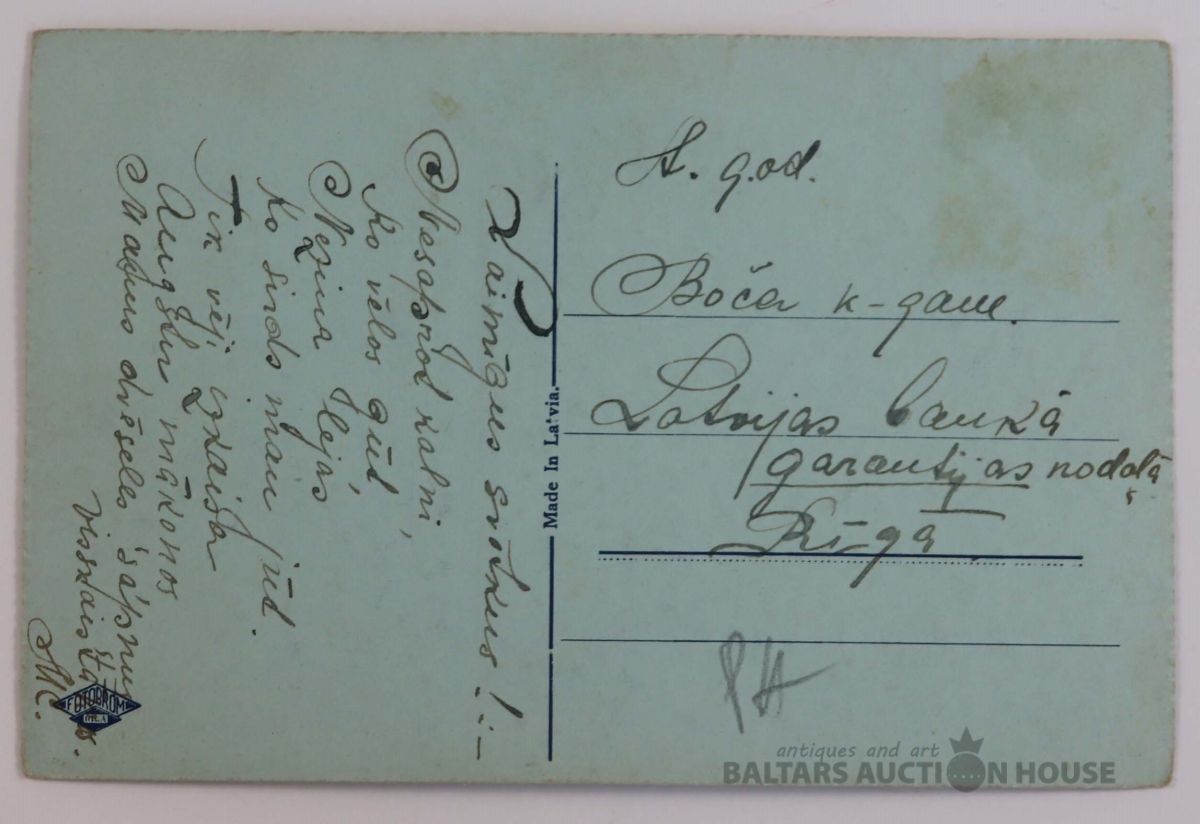 Laimīgus svētkus! :-
Nesaprot kalni,
Ko vēlos gūt,
Nezina lejas
Ko sirds man jūt.
Tik vēji skaista
Augstu mākonos
Manus dvēseles sapņus
visskaistākos.
M.
Made In Latvia.
A. god.
Boča k-gam.
Latvijas bankā
garantijas nodaļā
Rīgā
FOTOBROM
antiques and art
BALTARS AUCTION HOUSE